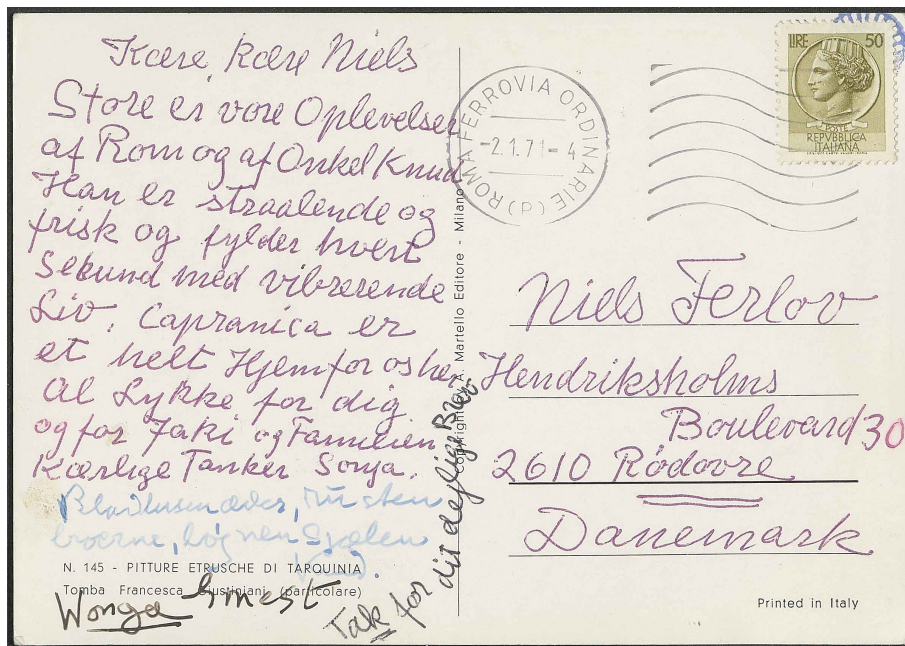 Kære, kære Niels
Store er vore Oplevelser
af Rom og af Onkel Knud
Han er straalende og
frisk og fylder hvert
Sekund med vibrerende
Liv. Capranica er
et helt Hjem for os her
Al Lykke for dig
og for Jaki og Familien.
Kærlige Tanker Sonja.
Knud.
Wonga Ernest
Tak for dit dejlige Brev
N. 145 - PITTURE ETRUSCHE DI TARQUINIA
Tomba Francesca Giustiniani (particolare)
Copyright by A. Martello Editore - Milano
ROMA FERROVIA ORDINARIE (P)
-2.1.71-4
LIRE 50
POSTE
REPVBBLICA
ITALIANA
Niels Ferlov
Hendriksholms
Boulevard 30
2610 Rödovre
Danemark
Printed in Italy